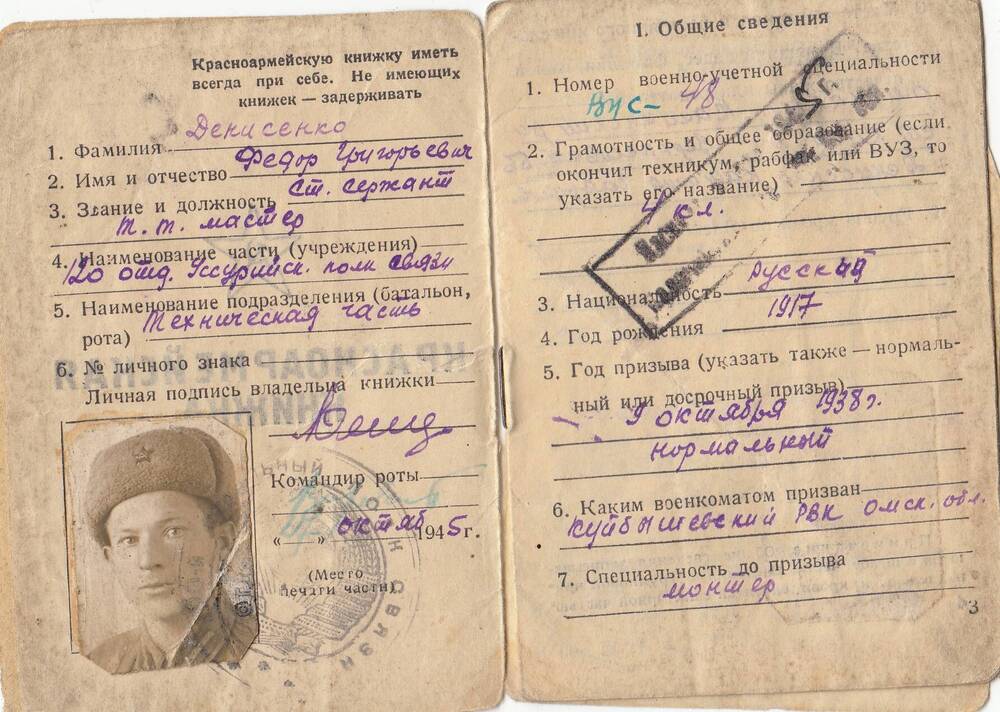 Красноармейскую книжку иметь
всегда при себе. Не имеющих
книжек — задерживать
1. Фамилия Денисенко
2. Имя и отчество Федор Григорьевич
3. Звание и должность ст. сержант
т. т. мастер
4. Наименование части (учреждения)
120 отд. Уссурийск. полк связи
5. Наименование подразделения (батальон,
рота) Техническая часть
6. № личного знака
Личная подпись владельца книжки
Командир роты
« » октяб 1945 г.
(Место
печати части)
КРАСНОАРМЕЙСКАЯ
КНИЖКА
I. Общие сведения
1. Номер военно-учетной специальности
ВУС- 48
2. Грамотность и общее образование (если
окончил техникум, рабфак или ВУЗ, то
указать его название)
4 кл.
3. Национальность русский
4. Год рождения 1917
5. Год призыва (указать также — нормаль-
ный или досрочный призыв)
9 октября 1938 г.
нормальный
6. Каким военкоматом призван
Куйбышевский РВК Омск. обл.
7. Специальность до призыва
монтер
3